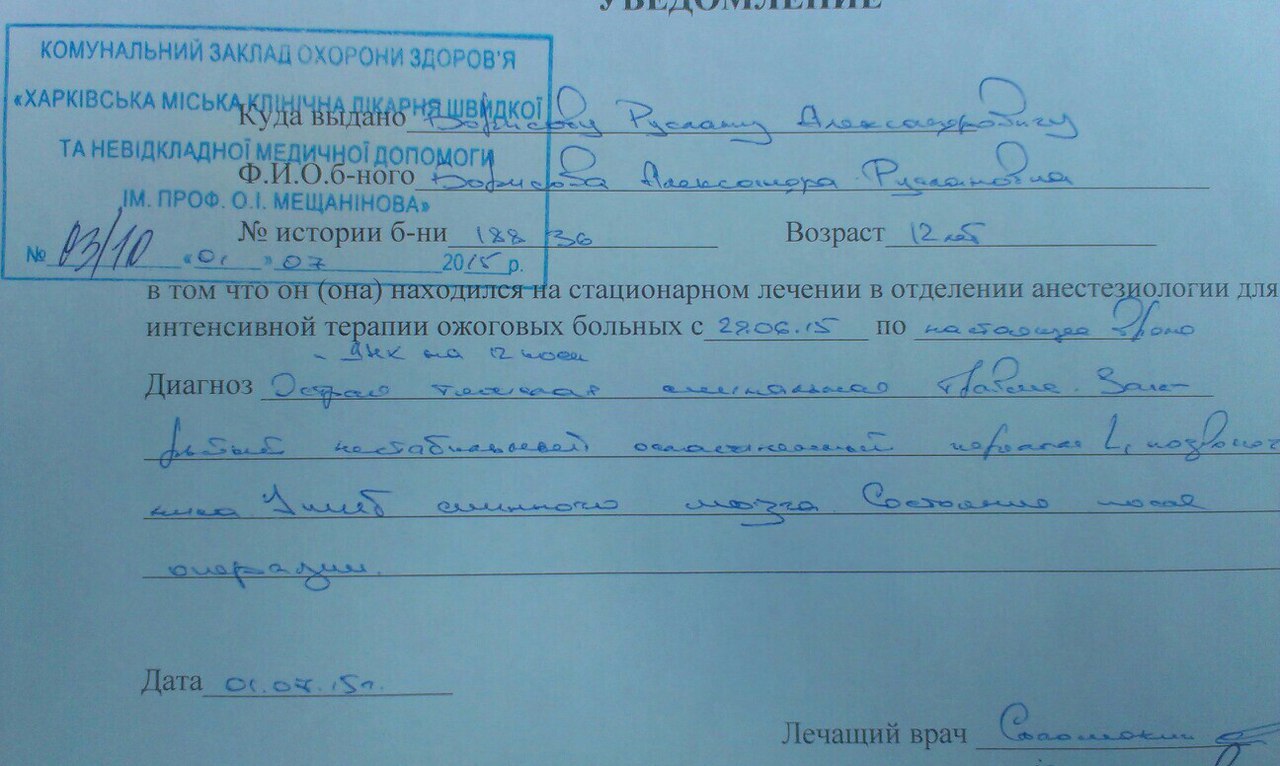 УВЕДОМЛЕНИЕ
КОМУНАЛЬНИЙ ЗАКЛАД ОХОРОНИ ЗДОРОВ'Я
«ХАРКІВСЬКА МІСЬКА КЛІНІЧНА ЛІКАРНЯ ШВИДКОЇ
ТА НЕВІДКЛАДНОЇ МЕДИЧНОЇ ДОПОМОГИ
ІМ. ПРОФ. О.І. МЕЩАНІНОВА»
№ 03/10 «01» 07 2015 р.
Куда выдано Борисову Руслану Александровичу
Ф.И.О.б-ного Борисова Александра Руслановна
№ истории б-ни 188 36 Возраст 12 лет
в том что он (она) находился на стационарном лечении в отделении анестезиологии для
интенсивной терапии ожоговых больных с 29.06.15 по настоящее время
на 12 койки
Диагноз Острая тяжелая спинальная травма. Зак-
рытый нестабильный оскольчатый перелом L1 позвоноч
ника Ушиб спинного мозга Состояние после
операции.
Дата 01.07.15г.
Лечащий врач